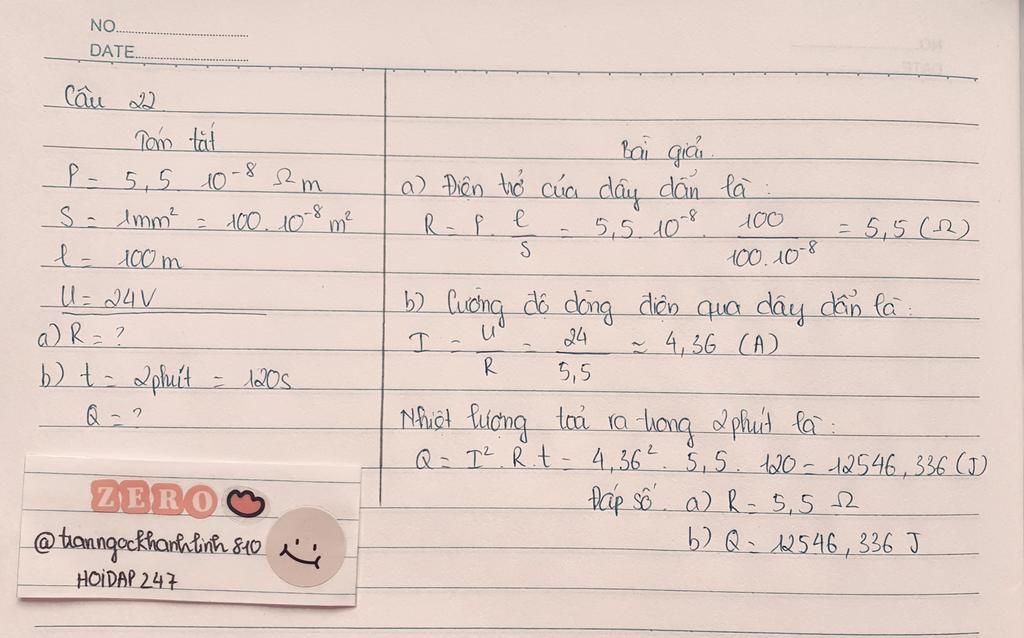 NO.
DATE
Câu 22
Tóm tắt
ρ = 5,5. 10⁻⁸ Ωm
S = 1mm² = 100. 10⁻⁸ m²
l = 100m
U = 24V
a) R = ?
b) t = 2phút = 120s
Q = ?
Bài giải.
a) Điện trở của dây dẩn là :
R = ρ. l/S = 5,5. 10⁻⁸. 100/100.10⁻⁸ = 5,5 (Ω)
b) Cường độ dòng điện qua dây dẩn là :
I = U/R = 24/5,5 ≈ 4,36 (A)
Nhiệt lượng toả ra trong 2phút là :
Q = I². R. t = 4,36². 5,5. 120 = 12546,336 (J)
Đáp số. a) R = 5,5 Ω
b) Q = 12546,336 J
ZERO
@tranngockhanhlinh810
HOIDAP247